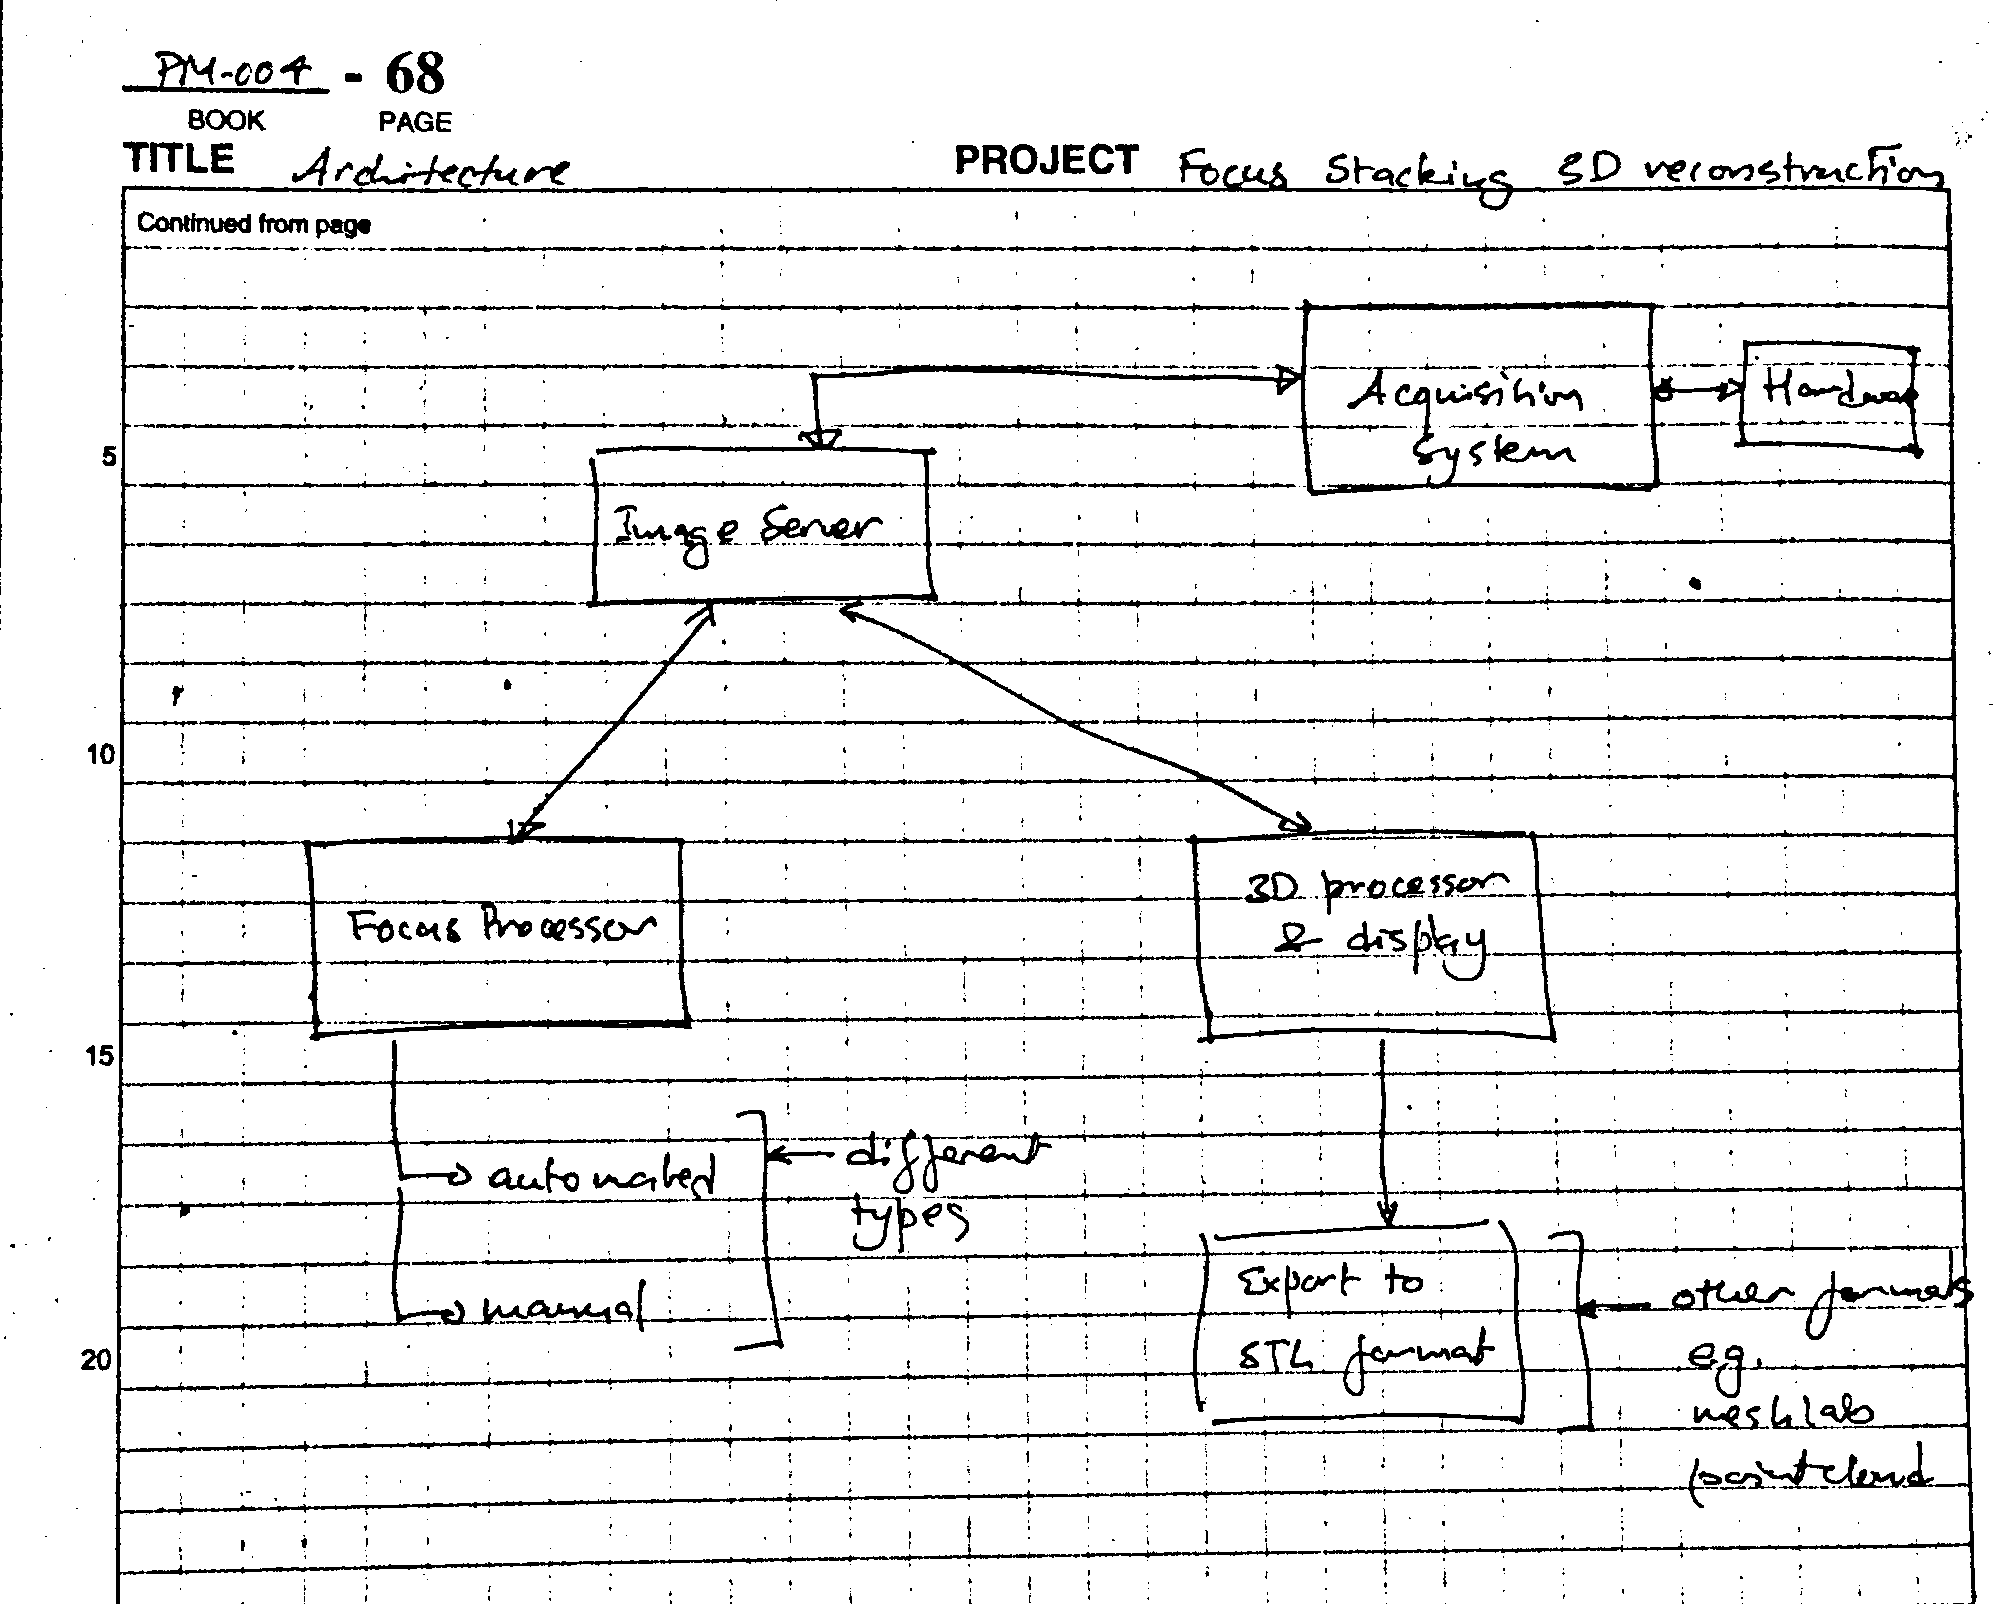 PM-004 - 68
BOOK PAGE
TITLE Architecture PROJECT Focus Stacking 3D reconstruction
Continued from page
Acquisition
System
Hardware
5
Image Server
10
Focus Processor
3D processor
& display
15
automated
different
types
manual
Export to
STL format
other formats
e.g.
meshlab
pointcloud
20